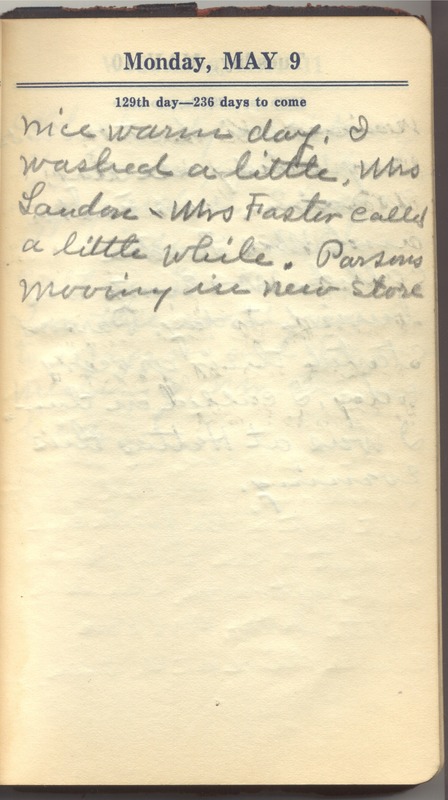 Monday, MAY 9
129th day—236 days to come
nice warm day. I
washed a little, Mrs
Landon & Mrs Faster called
a little while. Parsons
mooving in new store